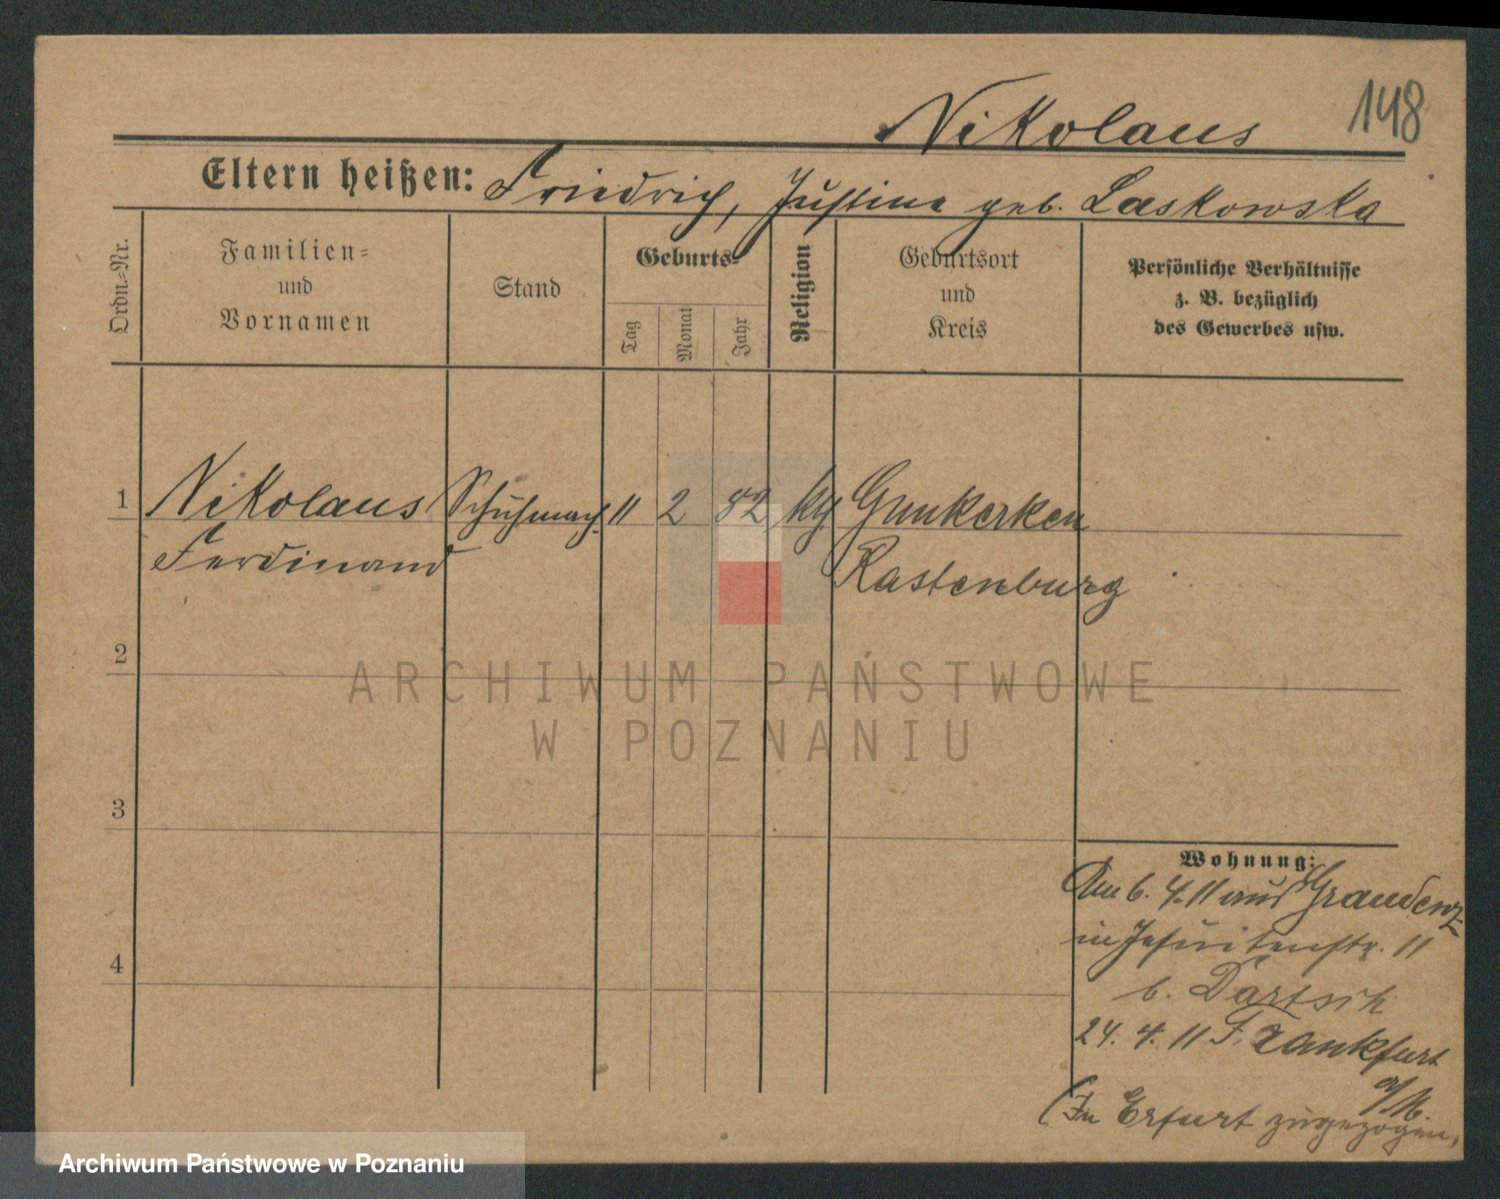 Nikolaus 148
Eltern heißen: Friedrich, Justine geb. Laskowska
Ordn.-Nr.
Familien-
und
Vornamen
Stand
Geburts-
Tag
Monat
Jahr
Religion
Geburtsort
und
Kreis
Persönliche Verhältnisse
z. B. bezüglich
des Gewerbes usw.
1 Nikolaus Schuhmach. 11 2 82 kg
Ferdinand
Rastenburg
2
3
4
Wohnung:
Am 6. 4. 11 aus Graudenz
in Jesuitenstr. 11
b.
24. 4. 11 Frankfurt
a/M.
(In Erfurt zugezogen,
ARCHIWUM PAŃSTWOWE
W POZNANIU
Archiwum Państwowe w Poznaniu